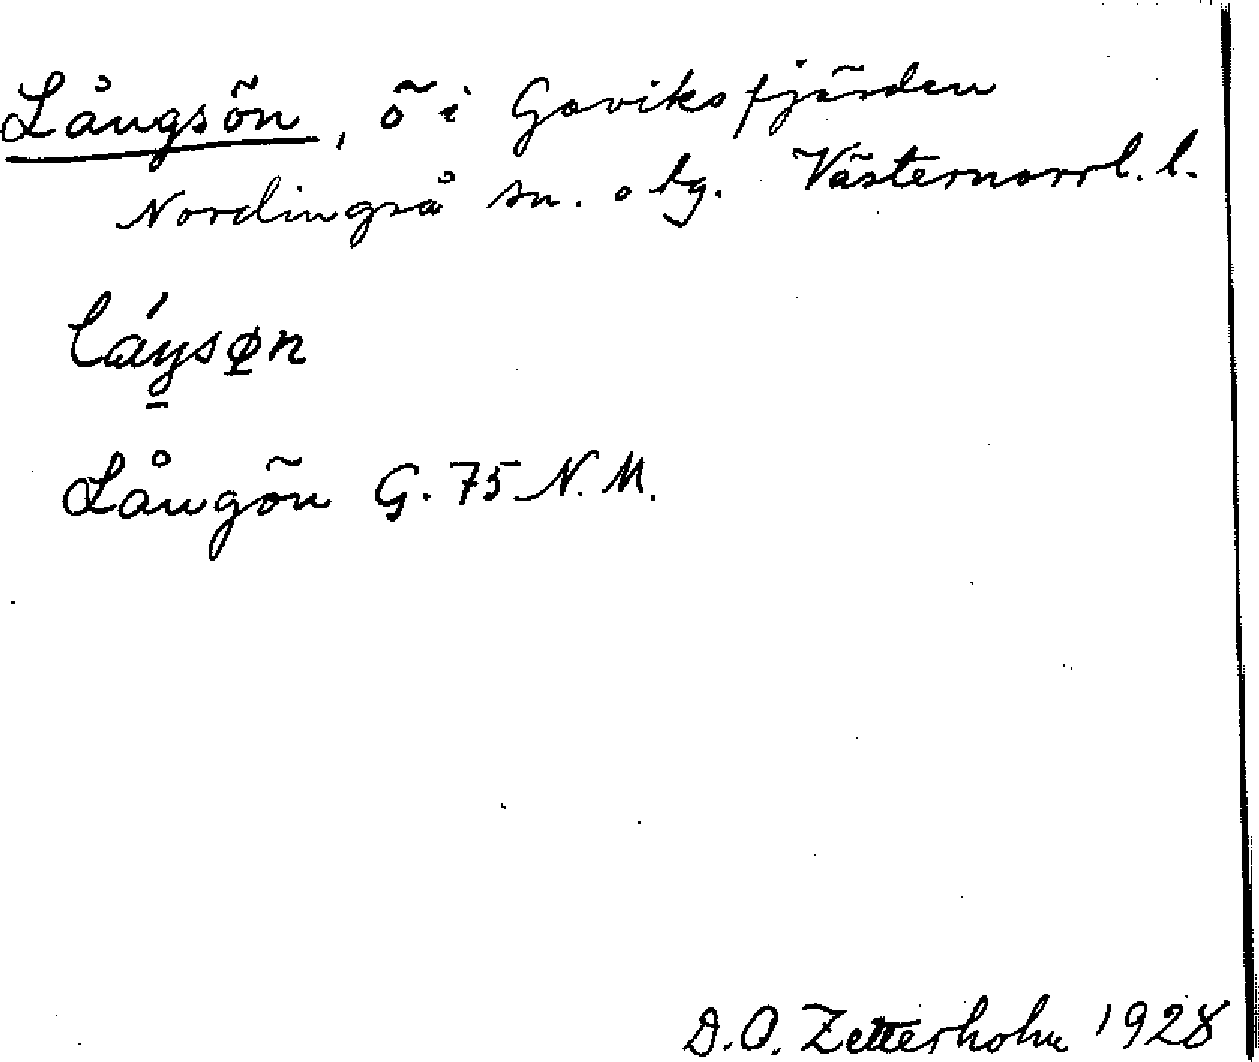 Långsön, ö i Gaviksfjärden
Nordingrå sn. o tg. Västernorrl. l.
Långön G. 75 N. M.
D. O. Zetterholm 1928